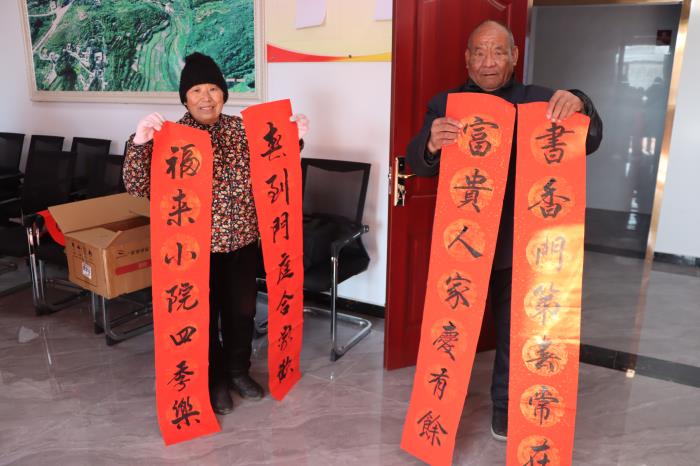 福来小院四季樂
喜到門庭合家歡
富貴人家慶有餘
書香門第春常在